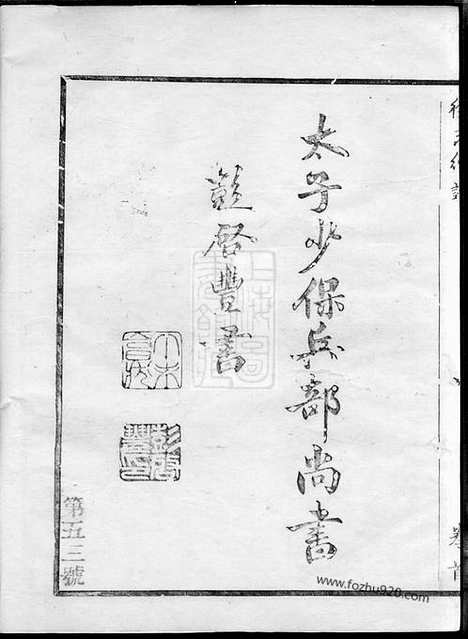 太子少保兵部尚書
彭啓豐書
彭啓豐印
第五三號
www.fozhu920.com